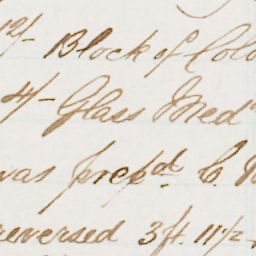 12/- Block of Col
4/- Glass Med
was prepd. C.
reversed 3 ft. 11 1/2